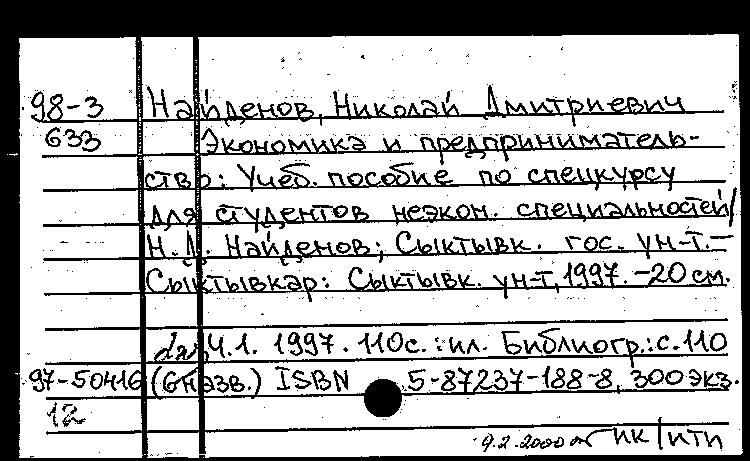 98-3 Найденов, Николай Дмитриевич
633 Экономика и предприниматель-
ство: Учеб. пособие по спецкурсу
для студентов неэкон. специальностей/
Н.Д. Найденов; Сыктывк. гос. ун-т. –
Сыктывкар: Сыктывк. ун-т, 1997. – 20 см.
Ч.1. 1997. 110с.: ил. Библиогр.: с.110
97-50416 (б назв.) ISBN 5-87237-188-8, 300 экз.
12
9.2.2000 пк/нтп